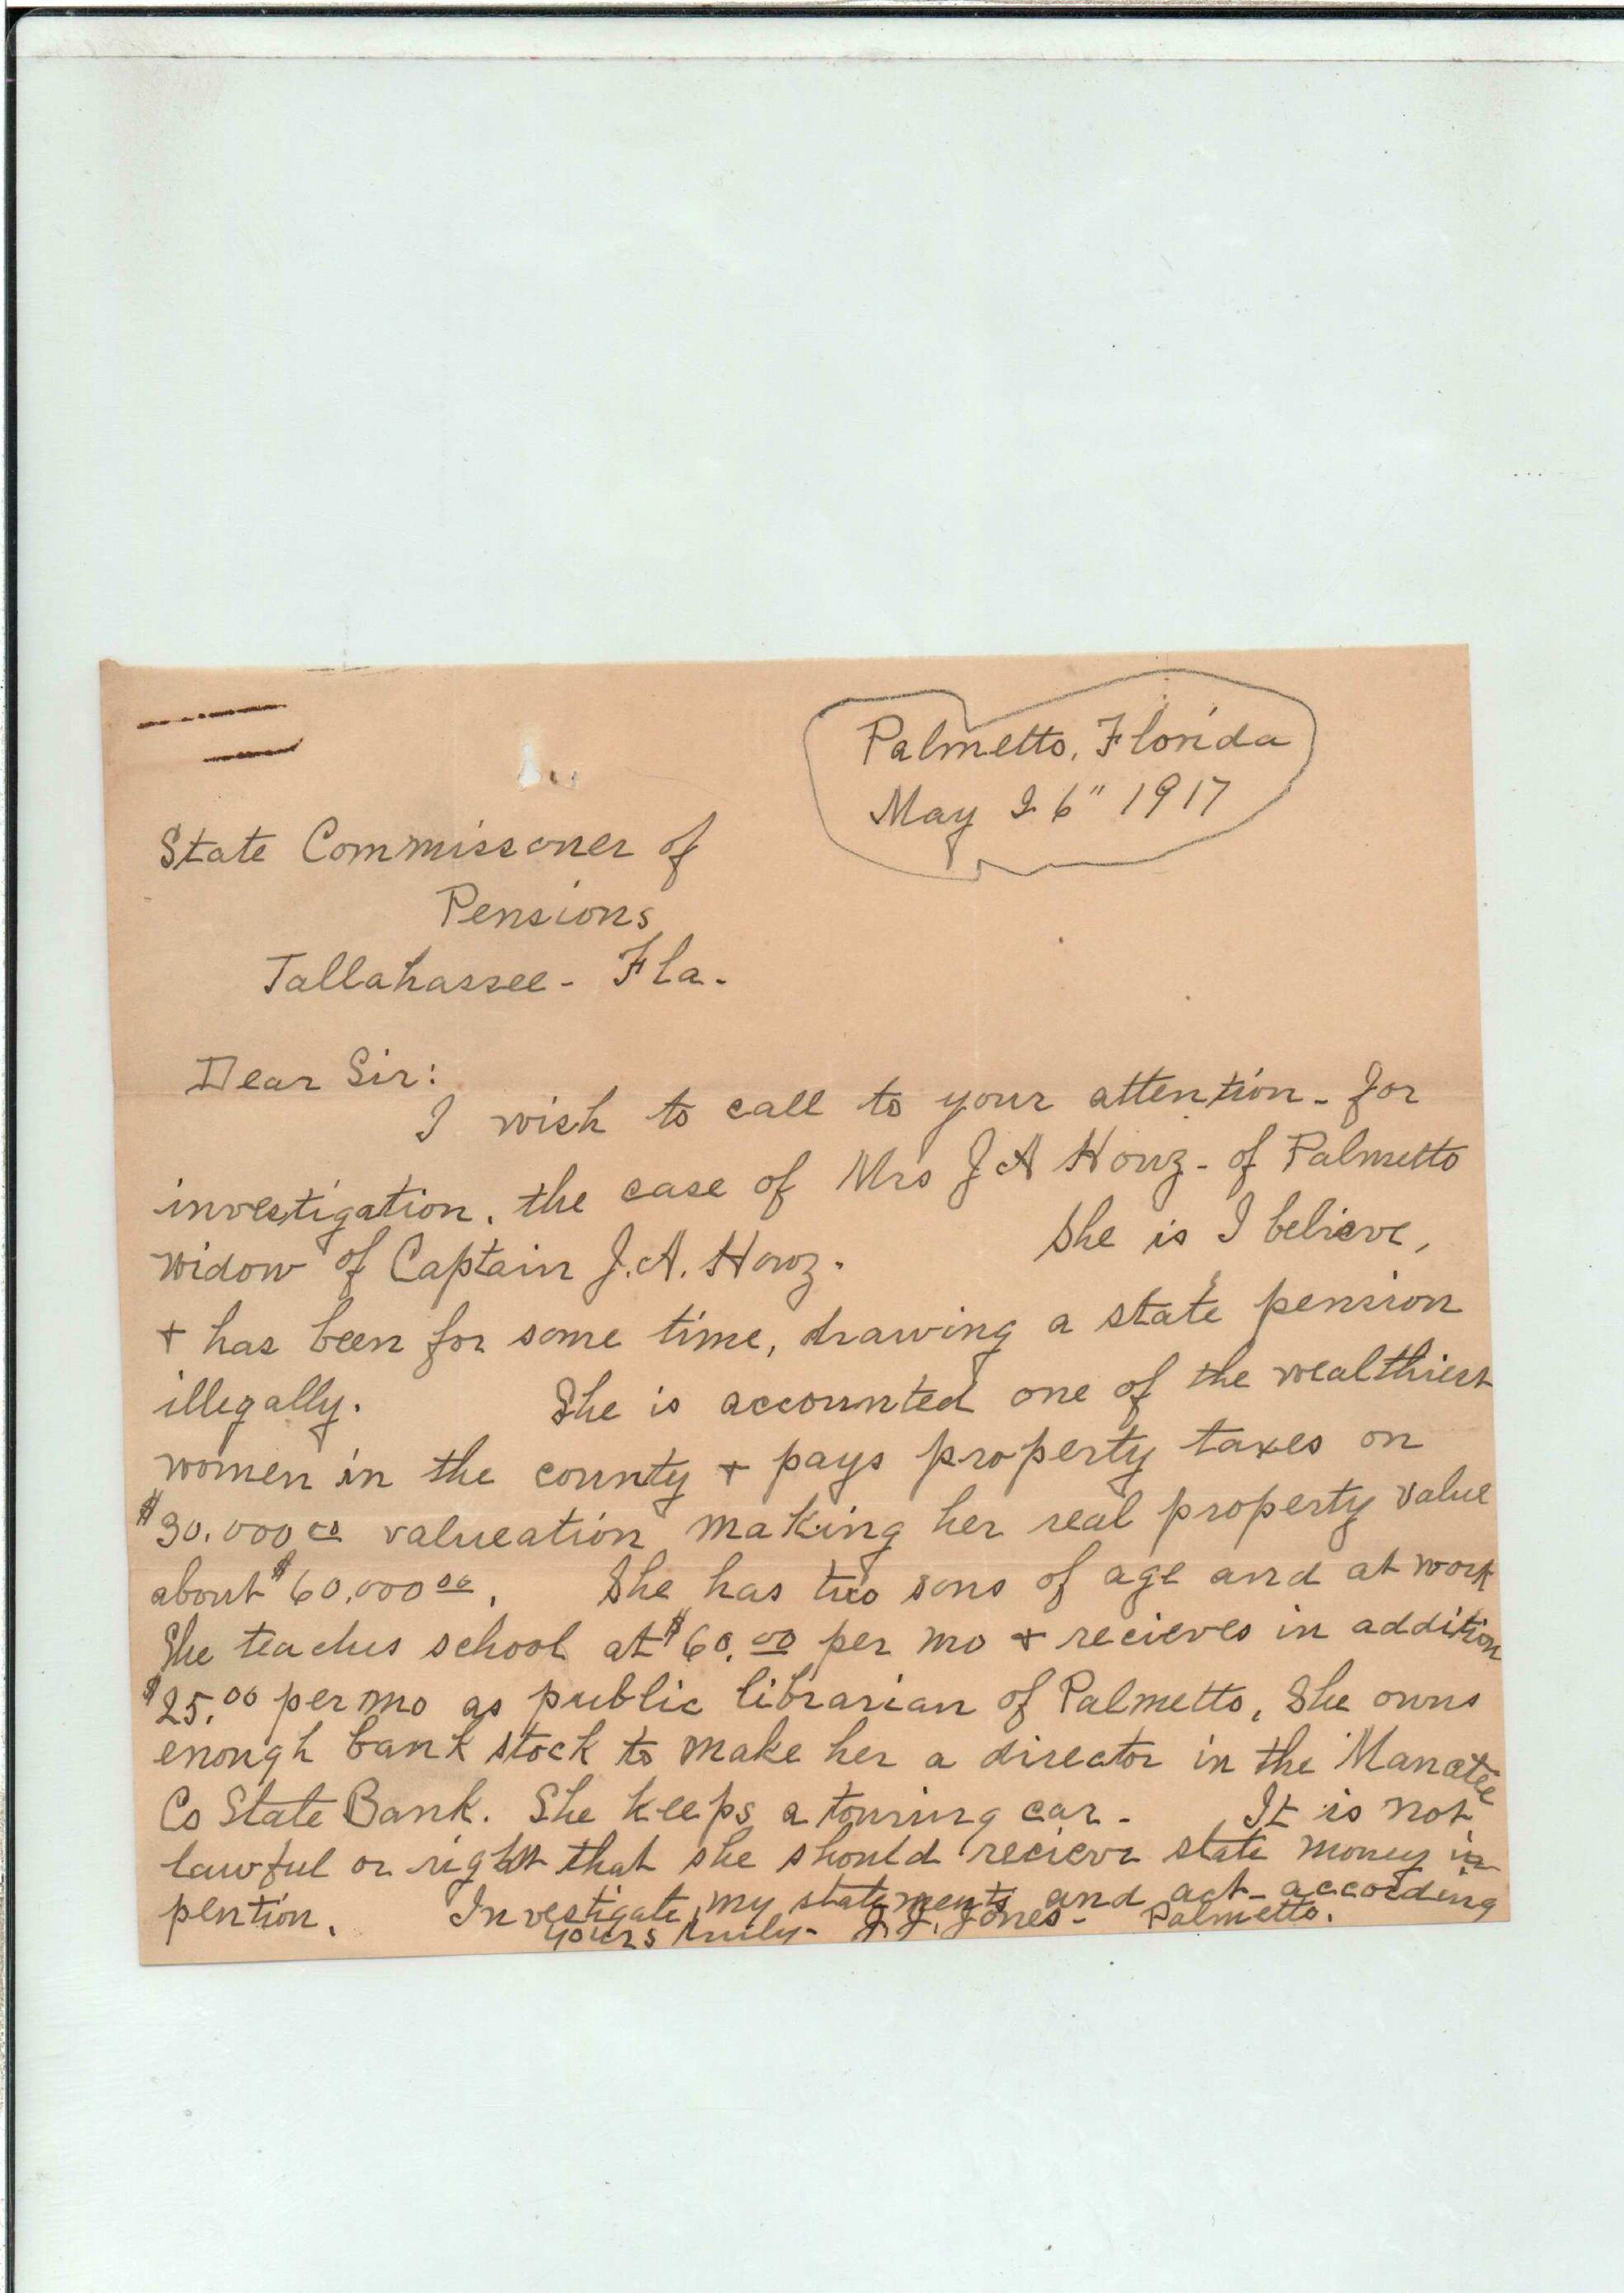 Palmetto, Florida
May 26" 1917
State Commissoner of
Pensions
Tallahassee - Fla.
Dear Sir:
I wish to call to your attention - for
investigation, the case of Mrs J A Howz - of Palmetto
widow of Captain J. A. Howz. She is I believe,
+ has been for some time, drawing a state pension
illegally. She is accounted one of the wealthiest
women in the county + pays property taxes on
$30.000 00 valueation making her real property value
about $60,000 00. She has two sons of age and at work
She teaches school at $60.00 per mo + recieves in addition
$25.00 per mo as public librarian of Palmetto, She owns
enough bank stock to make her a director in the Manatee
Co State Bank. She keeps a touring car - It is not
lawful or right that she should recieve state money in
pention. Investigate my statements and act - according
yours truly - J. J. Jones - Palmetto.